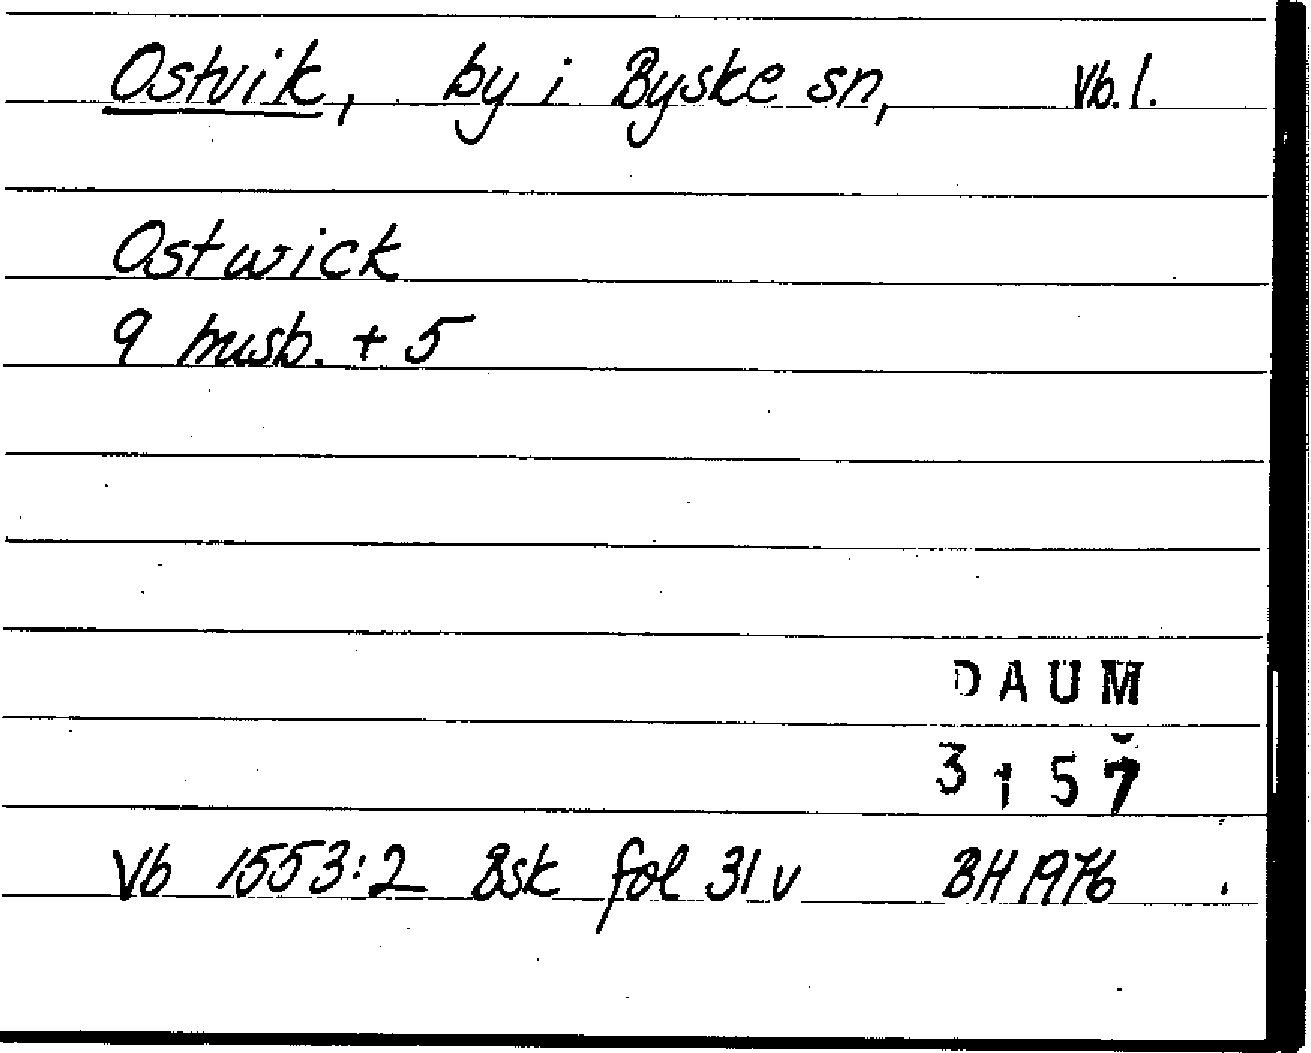 Ostvik, by i Byske sn, Vb. l.
Ostwick
9 husb. + 5
DAUM
3157
Vb 1553:2 Bsk fol 31 v BH 1976